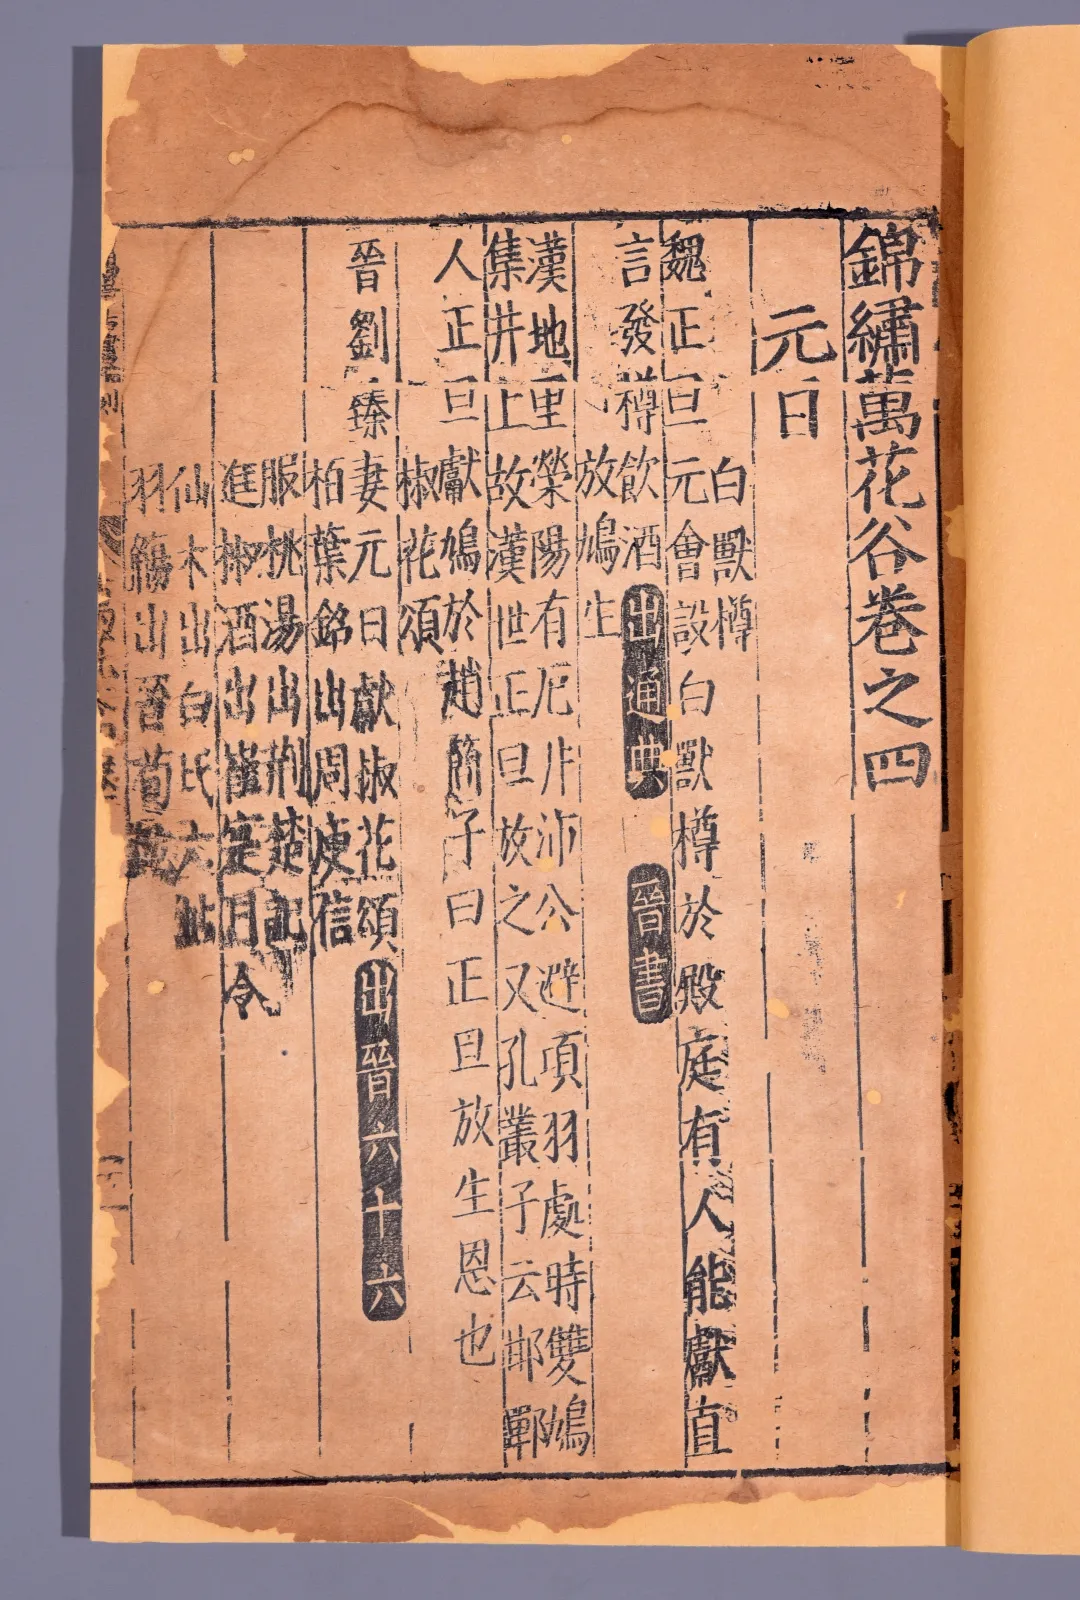 錦繡萬花谷卷之四
元日
白獸樽
魏正旦元會設白獸樽於殿庭有人能獻直
言發樽飲酒出通典 晉書
放鳩生
漢地里榮陽有厄井沛公避項羽處時雙鳩
集井上故漢世正旦放之又孔叢子云邯鄲
人正旦獻鳩於趙簡子曰正旦放生恩也
椒花頌
晉劉臻妻元日獻椒花頌出晉六十六
柏葉銘出周庾信
服桃湯出荆楚記
進椒酒出崔寔月令
仙木出白氏六帖
羽觴出晉荀